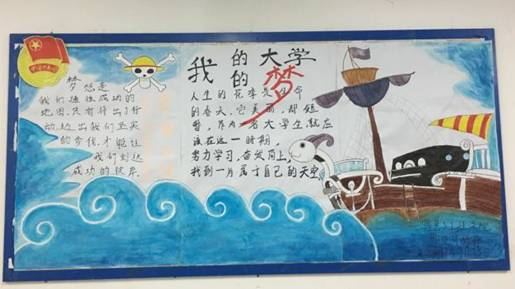 我的大学
的梦
梦想是
我们通往成功的
地图,只有付出了行
动,迈出我们坚实
的步伐,才能让
我们到达
成功的彼岸.
人生的花季是生命
的春天,它美丽,却短
暂,作为一名大学生就应
该在这一时期,
努力学习,奋发向上,
找到一片属于自己的天空.